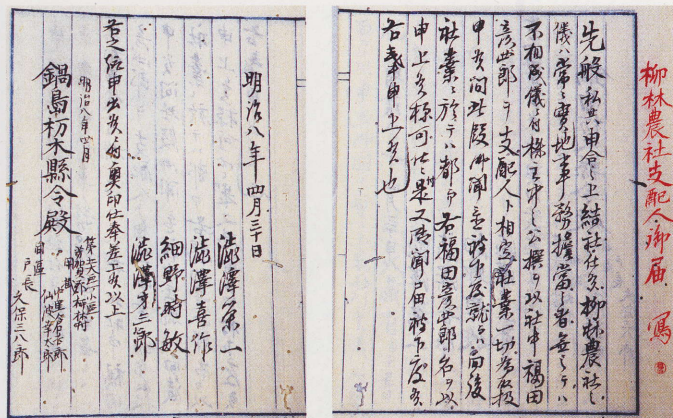 柳林農社支配人御届 寫
先般私共申合之上結社仕候柳林農社之
儀ハ常ニ實地事務擔當之者無之テハ
不相成儀ニ付株主中之公撰ヲ以社中福田
彦四郎ヲ支配人ト相定社業一切為取扱
申候間此段御聞置被下度就テハ向後
社業ニ於テハ都而右福田彦四郎名ヲ以
申上候様可仕是又御聞届被下度候
右奉申上候也
明治八年四月三十日
澁澤栄一
澁澤喜作
細野時敏
澁澤才三郎
右之依申出候ニ付奥印仕奉差上候以上
明治八年四月
第大區小區
芳賀郡柳林村
用掛
仙波安太郎
同
戸長
大保三八郎
鍋島栃木縣令殿